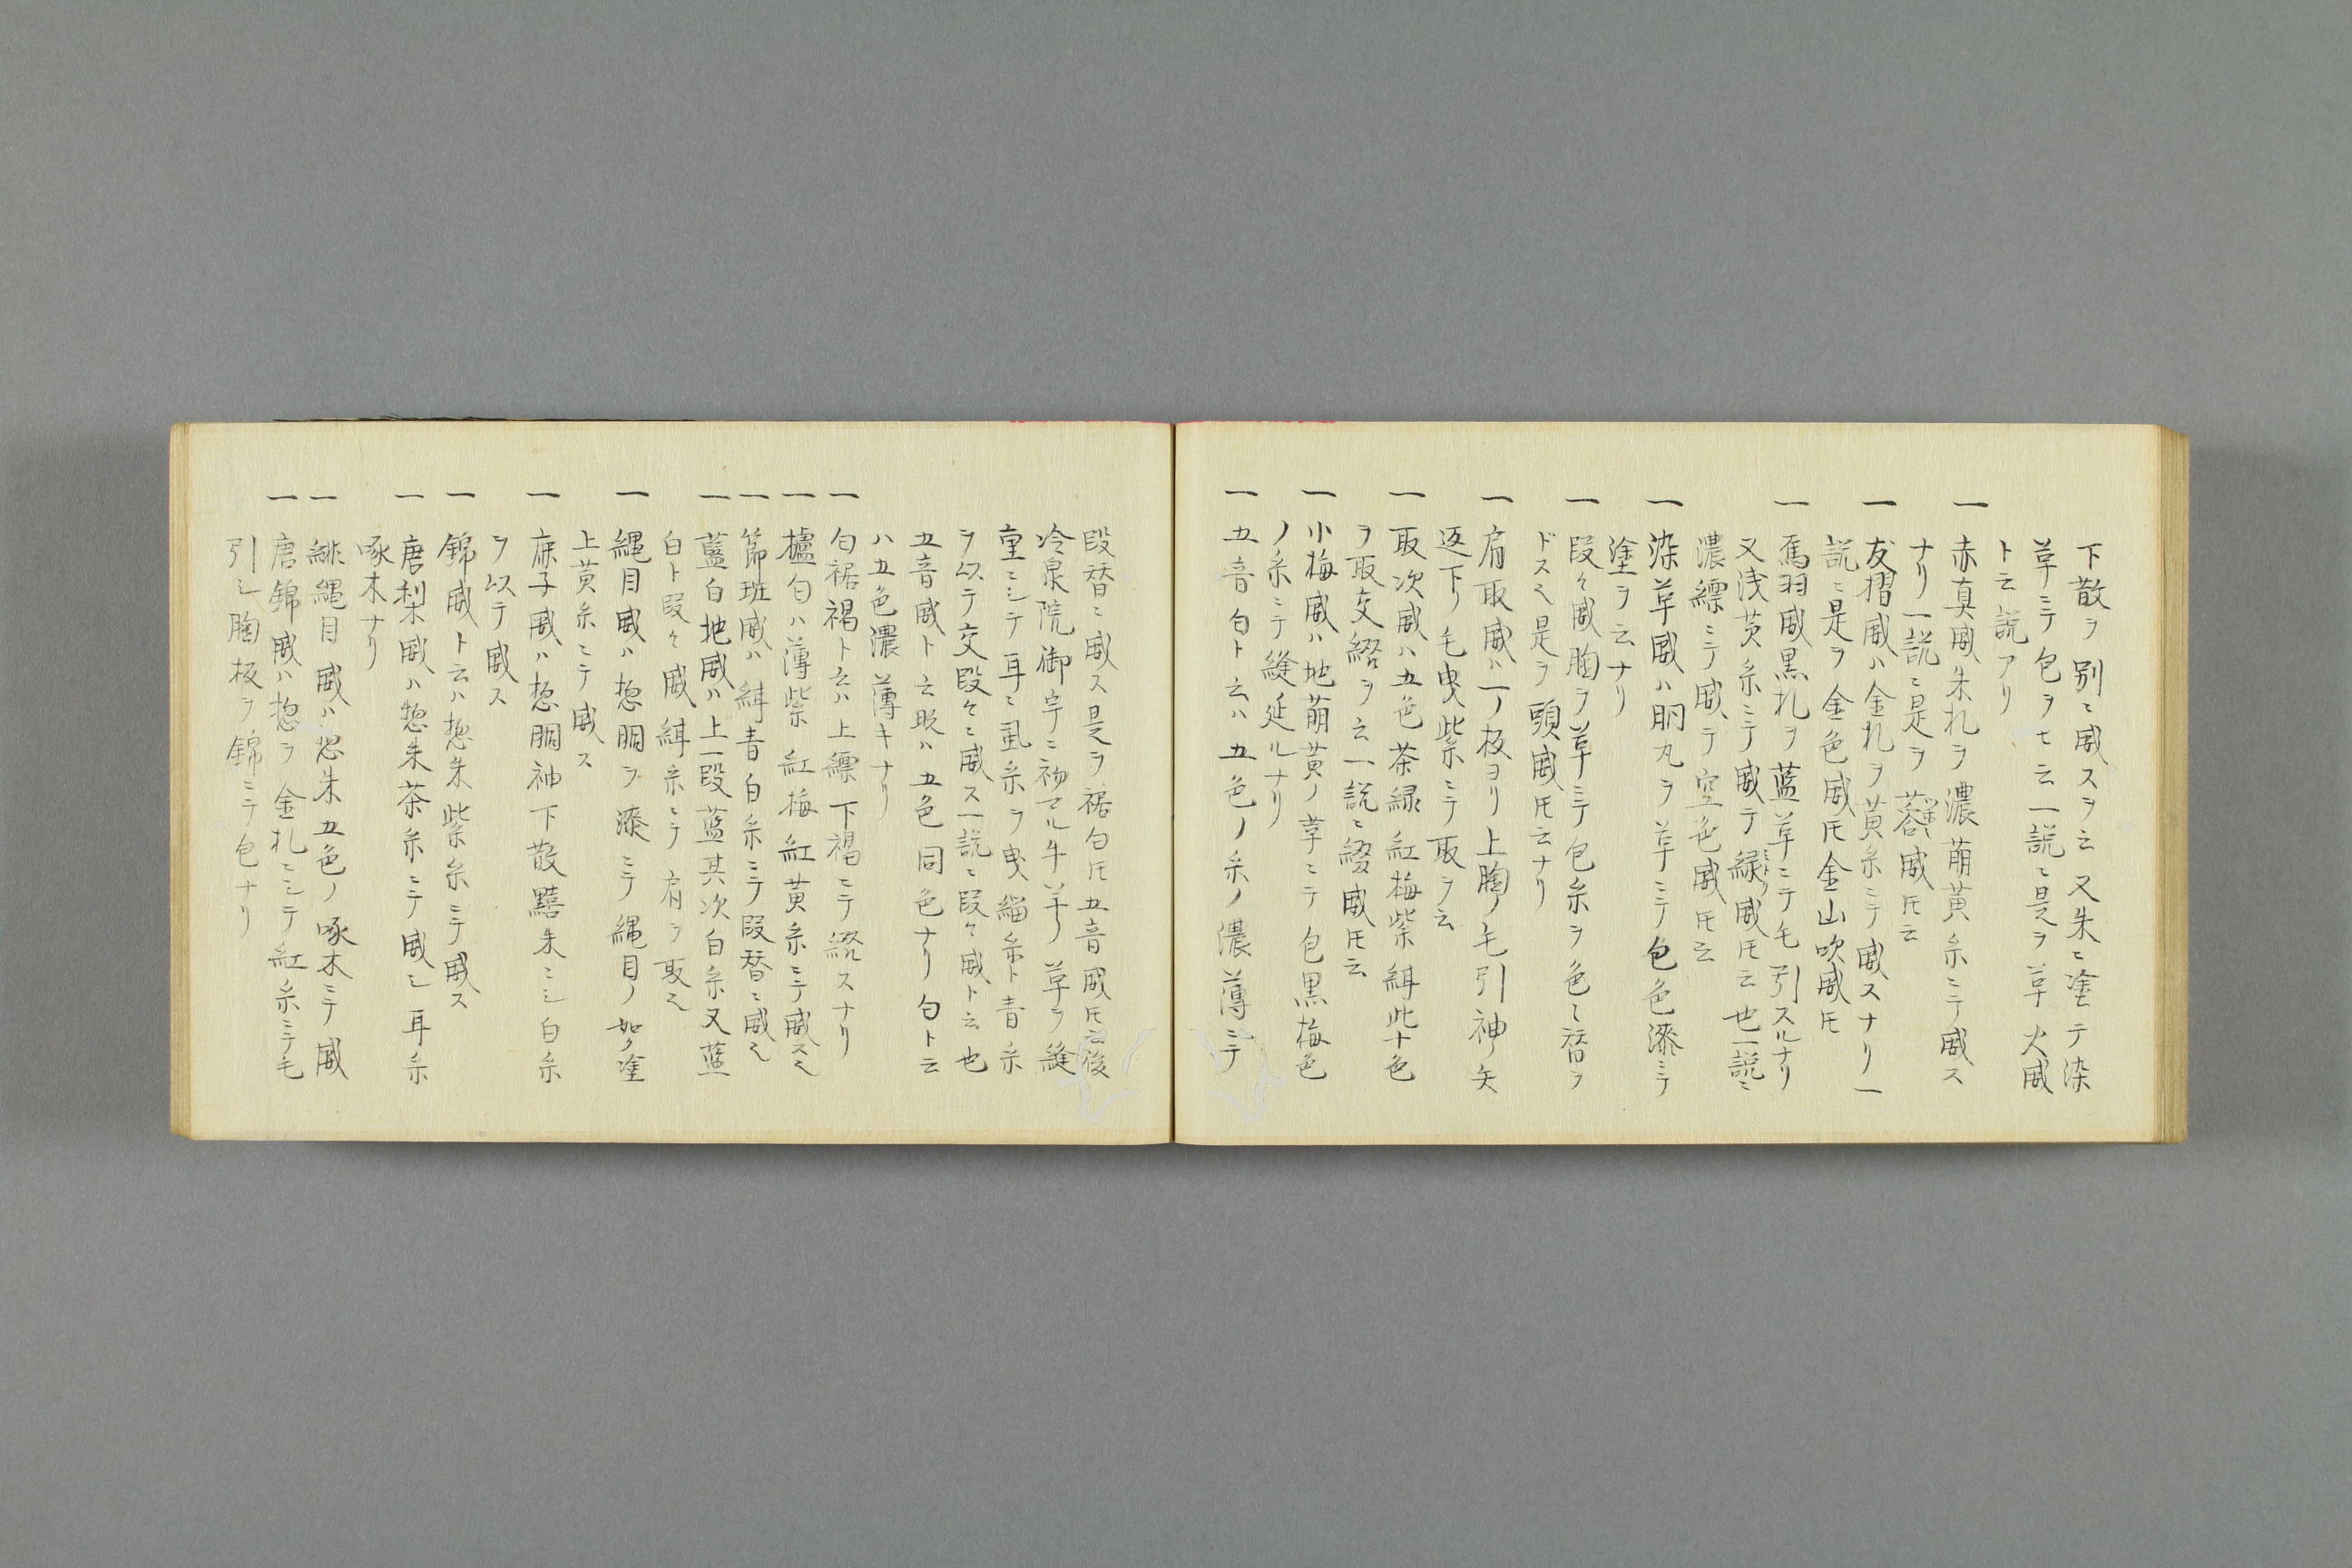 下散ヲ別ニ威スヲ云又朱ニ塗テ染
草ニテ包ヲモ云一説ニ是ヲ草火威
ト云説アリ
一 赤真威朱札ヲ濃萠黄糸ニテ威ス
ナリ一説ニ是ヲ 威𪜈云
一 友摺威ハ金札ヲ黄糸ニテ威スナリ一
説ニ是ヲ金色威𪜈金山吹威𪜈
一 馬羽威黒札ヲ藍草ニテ毛引スルナリ
又浅黄糸ニテ威テ緑威𪜈云也一説ニ
濃縹ニテ威テ空色威𪜈云
一 染草威ハ胴丸ヲ草ニテ包色漆ニテ
塗ヲ云ナリ
一 段々威胸ヲ草ニテ包糸ヲ色々替ヲ
ドス也是ヲ頭威𪜈云ナリ
一 肩取威ハ一ノ板ヨリ上胸ノ毛引神ノ矢
返下リ毛曳紫ニテ取ヲ云
一 取次威ハ五色茶緑紅梅紫絹此十色
ヲ取交綴ヲ云一説ニ綴威𪜈云
一 小梅威ハ地萠黄ノ草ニテ包黒梅色
ノ糸ニテ縫延ルナリ
一 五音匂ト云ハ五色ノ糸ノ濃薄ニテ
段替ニ威ス是ヲ裾匂𪜈五音威𪜈云後
冷泉院御宇ニ初マル牛 草ヲ縫
重ニシテ耳ニ 糸ヲ曳 糸ト青糸
ヲ以テ交段々ニ威ス一説ニ段々威ト云也
五音威ト云 ハ五色同色ナリ匂ト云
ハ五色濃薄キナリ
一 匂裾裼ト云ハ上縹下裼ニテ スナリ
一 櫨匂ハ薄紫紅梅紅黄糸ニテ威ス也
一 節斑威ハ絹青白糸ニテ段替ニ威也
一 藍白地威ハ上一段藍其次白糸又藍
白ト段々威絹糸ニテ肩ヲ取也
一 縄目威ハ惣胴ヲ漆ニテ縄目ノ如ク塗
上黄糸ニテ威ス
一 麻子威ハ惣胴袖下散黯朱ニシ白糸
ヲ以テ威ス
一 錦威ト云ハ惣朱紫糸ニテ威ス
一 唐梨威ハ惣朱茶糸ニテ威シ耳糸
啄木ナリ
一 緋縄目威ハ惣朱五色ノ啄木ニテ威
一 唐錦威ハ惣ヲ金札ニシテ紅糸ニテ毛
引シ胸板ヲ錦ニテ包ナリ